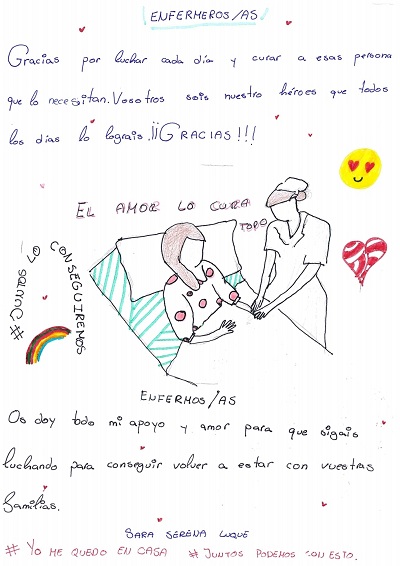 ENFERMEROS/AS
Gracias por luchar cada día y curar a esas persona
que lo necesitan. Vosotros sois nuestro héroes que todos
los días lo lograis. ¡¡GRACIAS!!!
EL AMOR LO CURA
TODO
#JUNTOS LO
CONSEGUIREMOS
ENFERMOS/AS
Os doy todo mi apoyo y amor para que sigais
luchando para conseguir volver a estar con vuestras
familias.
SARA SERENA LUQUE
# YO ME QUEDO EN CASA # JUNTOS PODEMOS CON ESTO.